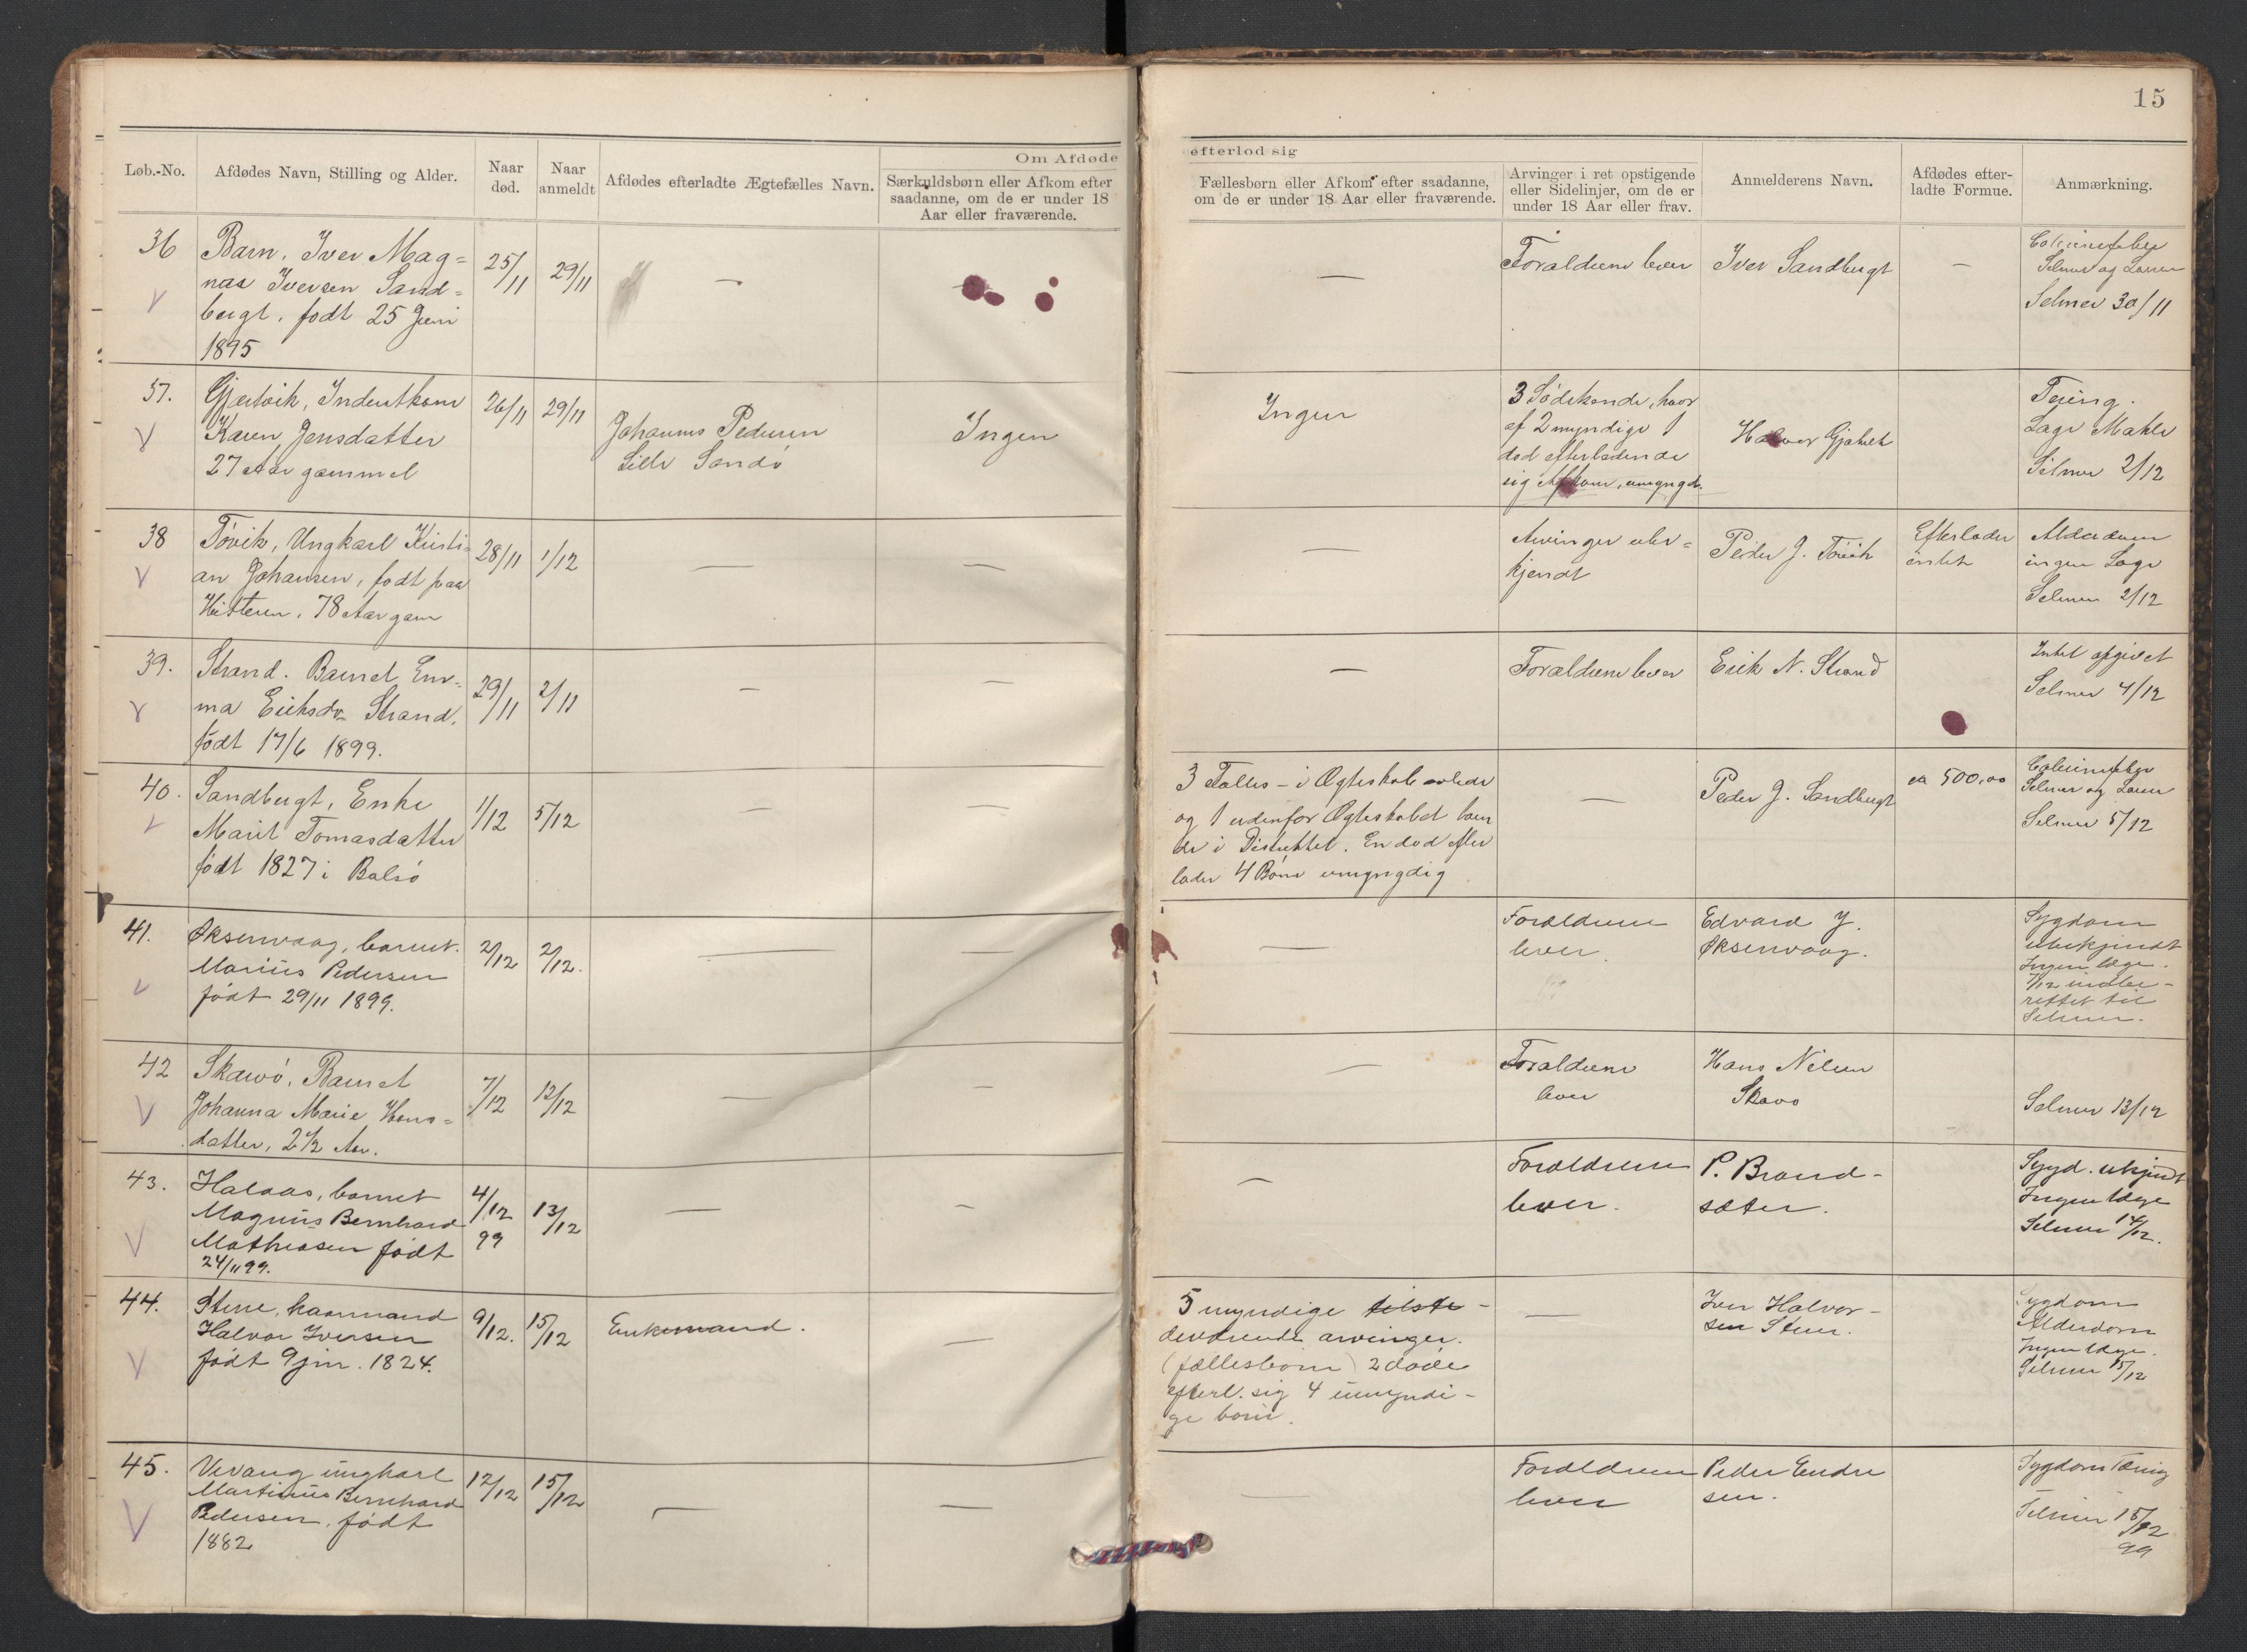 15
Om Afdøde
efterlod sig
Løb.-No.
Afdødes Navn, Stilling og Alder.
Naar
død.
Naar
anmeldt
Afdødes efterladte Ægtefælles Navn.
Særkuldsbørn eller Afkom efter
saadanne, om de er under 18
Aar eller fraværende.
Fællesbørn eller Afkom efter saadanne,
om de er under 18 Aar eller fraværende.
Arvinger i ret opstigende
eller Sidelinjer, om de er
under 18 Aar eller frav.
Anmelderens Navn.
Afdødes efter-
ladte Formue.
Anmærkning.
36
Barn, Iver Mag=
nas Iversen Sand=
bugt, født 25 Juni
1895
25/11
29/11
—
—
Forældrene lever
Iver Sandbugt
—
Selmer og
Selmer 30/11
37.
Gjertvik, Inderstkone
Karen Jensdatter
27 Aar gammel
26/11
29/11
Johannes Pedersen
Lille Sandø
Ingen
Ingen
3 Sødskende, hvor
af 2 myndige 1
død efterladende
sig Afkom, umyngd.
Halvor
Tæring.
Læge Mahle
Selmer 2/12
38
Tøvik, Ungkarl Kristi=
an Johansen, født paa
Hitteren, 78 Aar gam
28/11
1/12
—
—
—
Arvinger ube=
kjendt
Peder J. Tøvik
Efterlader
intet
Alderdom
ingen Læge
Selmer 2/12
39.
Strand. Barnet Em=
ma Eriksdr Strand,
født 17/6 1899.
29/11
2/11
—
—
—
Forældrene lever
Erik N. Strand
Intet opgivet
Selmer 4/12
40.
Sandbugt, Enke
Marit Tomasdatter
født 1827 i Bolsø
1/12
5/12
—
—
3 Fælles - i Ægteskab avlede
og 1 udenfor Ægteskabet boen
de i Distriktet. En død efter
lader 4 Børn umyngdig
—
Peder J. Sandbugt
ca 500,00
Selmer og
Selmer 5/12
41.
Øksenvaag, barnet.
Marius Pedersen
født 29/11 1899.
2/12
2/12.
—
—
—
Forældrene
lever.
Edvard J.
Øksenvaag.
Sygdom
ubekjendt
Ingen læge.
7/12 indbe-
rettet til
Selmer.
42
Skarvø, Barnet
Johanna Marie Hans=
datter, 2 1/2 Aar.
7/12
12/12
—
—
—
Forældrene
lever
Hans Nilsen
Skavø
Selmer 13/12
43.
Halaas, barnet
Magnus Bernhard
Mathiasen født
24/11 99.
4/12
99
13/12
—
—
—
Forældrene
lever.
P. Brand-
sæter.
Sygd. ukjendt
Ingen læge
Selmer 14/12.
44.
Stene, kaarmand
Halvor Iversen
født 9 jan. 1824.
9/12.
15/12
Enkemand.
—
5 myndige tilste-
deværende arvinger.
(fællesbørn) 2 døde
efterl. sig 4 umyndi-
ge børn.
—
Iver Halvor-
sen Stene.
Sygdom
Alderdom
Ingen læge.
Selmer 15/12
45.
Vevang ungkarl
Martinus Bernhard
Pedersen, født
1882
12/12
15/12
—
—
—
Forældrene
lever
Peder Endre
sen.
Sygdom Tæring
Selmer 15/12
99